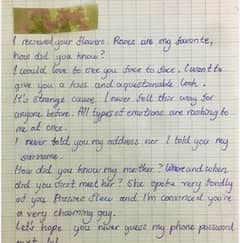 I received your flowers. Roses are my favorite,
how did you know?
I would love to see you face to face. I want to
give you a kiss and a questionable look.
It's strange cause I never felt this way for
anyone before. All types of emotions are rushing to
me at once.
I never told you my address nor I told you my
surname.
How did you know my mother? Where and when
did you first meet her? She spoke very fondly
of you Mister and I'm convinced you're
a very charming guy.
Let's hope you never guess my phone password